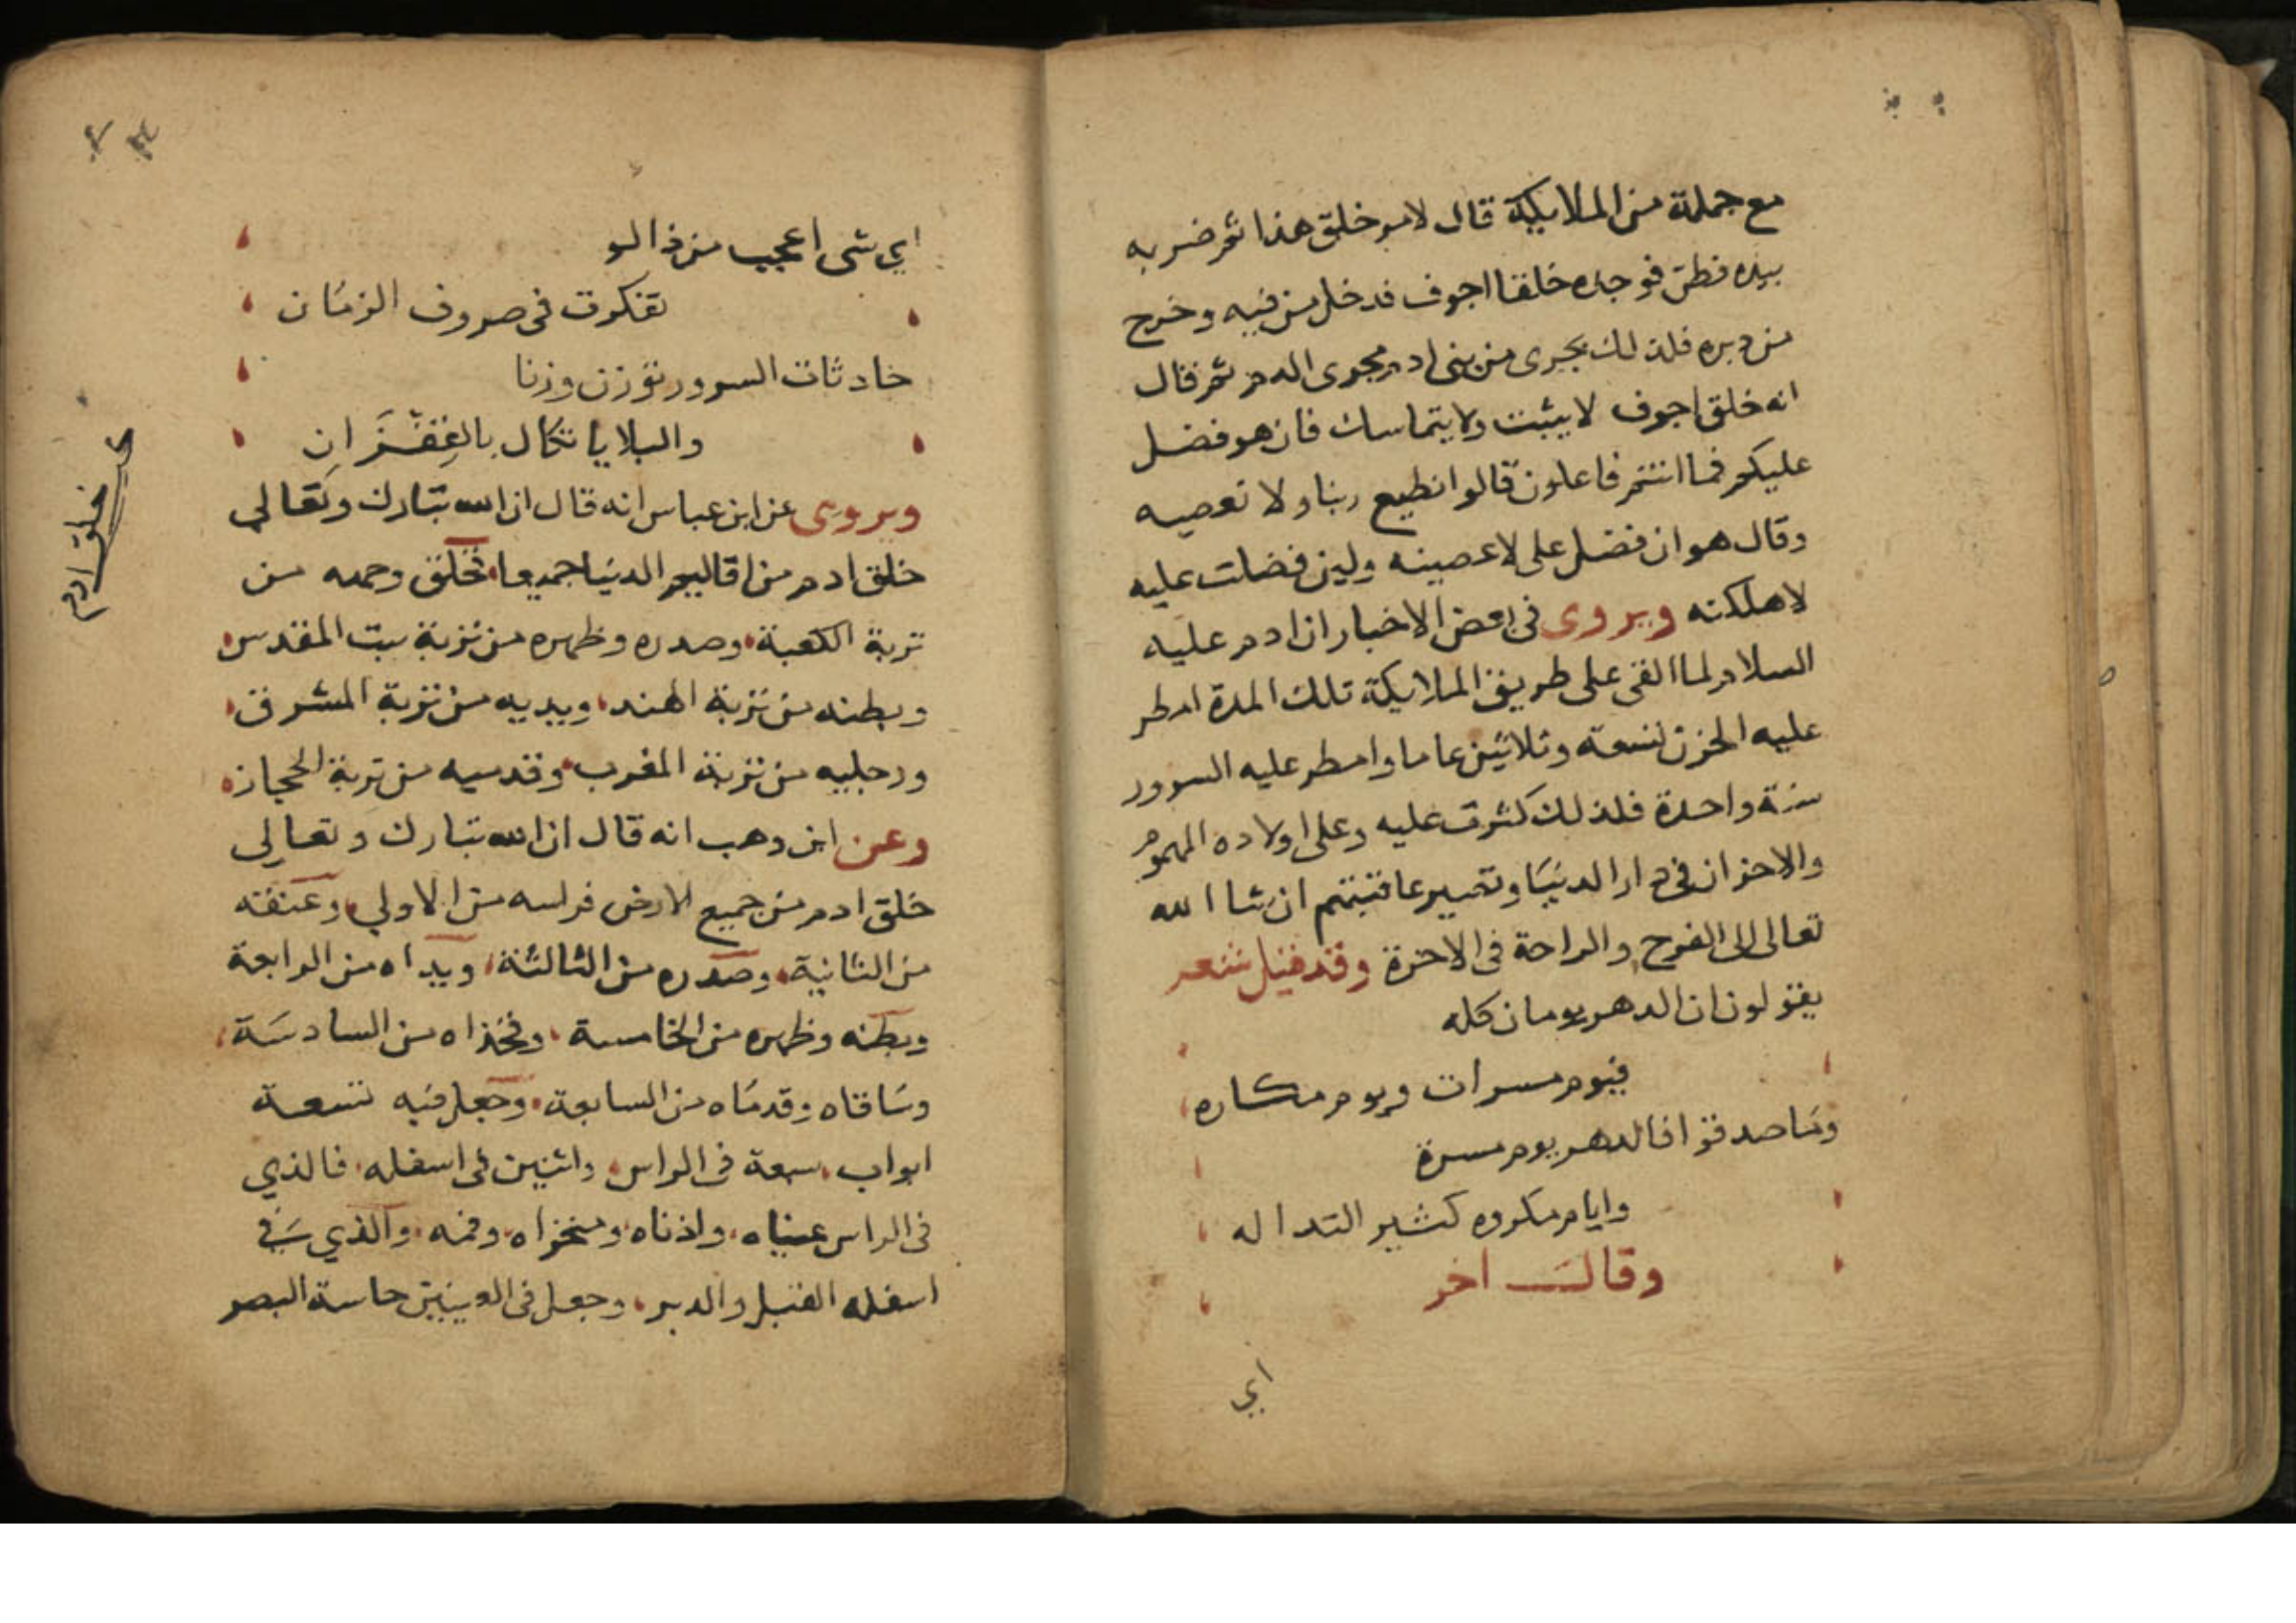 مع جملة من الملايكة قال لامر خلق هذا ثم ضربه
بيده فطن فوجده خلقا اجوف فدخل من فيه وخرج
من دبره فلذلك يجرى من بنى ادم مجرى الدم ثم قال
انه خلق اجوف لا يثبت ولا يتماسك فان هو فضل
عليكم فما انتم فاعلون قالوا نطيع ربنا ولا نعصيه
وقال هو ان فضل على لاعصينه ولين فضلت عليه
لاهلكنه ويروى فى بعض الاخبار ان ادم عليه
السلام لما القى على طريق الملايكة تلك المدة امطر
عليه الحزن تسعة وثلاثين عاما وامطر عليه السرور
سنة واحدة فلذلك كثرت عليه وعلى اولاده الهموم
والاحزان فى دار الدنيا وتصير عاقبتهم ان شا الله
تعالى الى الفرح والراحة فى الاخرة وقد قيل شعر
يقولون ان الدهر يومان كله
فيوم مسرات ويوم مكاره
وما صدقوا فالدهر يوم مسرة
وايام مكروه كثير التداله
وقال اخر
اي
اي شى اعجب من ذا لو
تفكرت فى صروف الزمان
حادثات السرور توزن وزنا
والبلايا تكال بالقفزان
ويروى عن ابن عباس انه قال ان الله تبارك وتعالي
خلق ادم من اقاليم الدنيا جميعا فخلق وجهه من
تربة الكعبة وصدره وظهره من تربة بيت المقدس
وبطنه من تربة الهند ويديه من تربة المشرق
ورجليه من تربة المغرب وقدميه من تربة الحجاز
وعن ابن وهب انه قال ان الله تبارك وتعالى
خلق ادم من جميع الارض فراسه من الاولي وعنقه
من الثانية وصدره من الثالثة ويداه من الرابعة
وبطنه وظهره من الخامسة وفخذاه من السادسة
وساقاه وقدماه من السابعة وجعل فيه تسعة
ابواب سبعة فى الراس واثنين فى اسفله فالذي
فى الراس عيناه واذناه ومنخراه وفمه والذي فى
اسفله القبل والدبر وجعل فى العينين حاسة البصر
خلق ادم